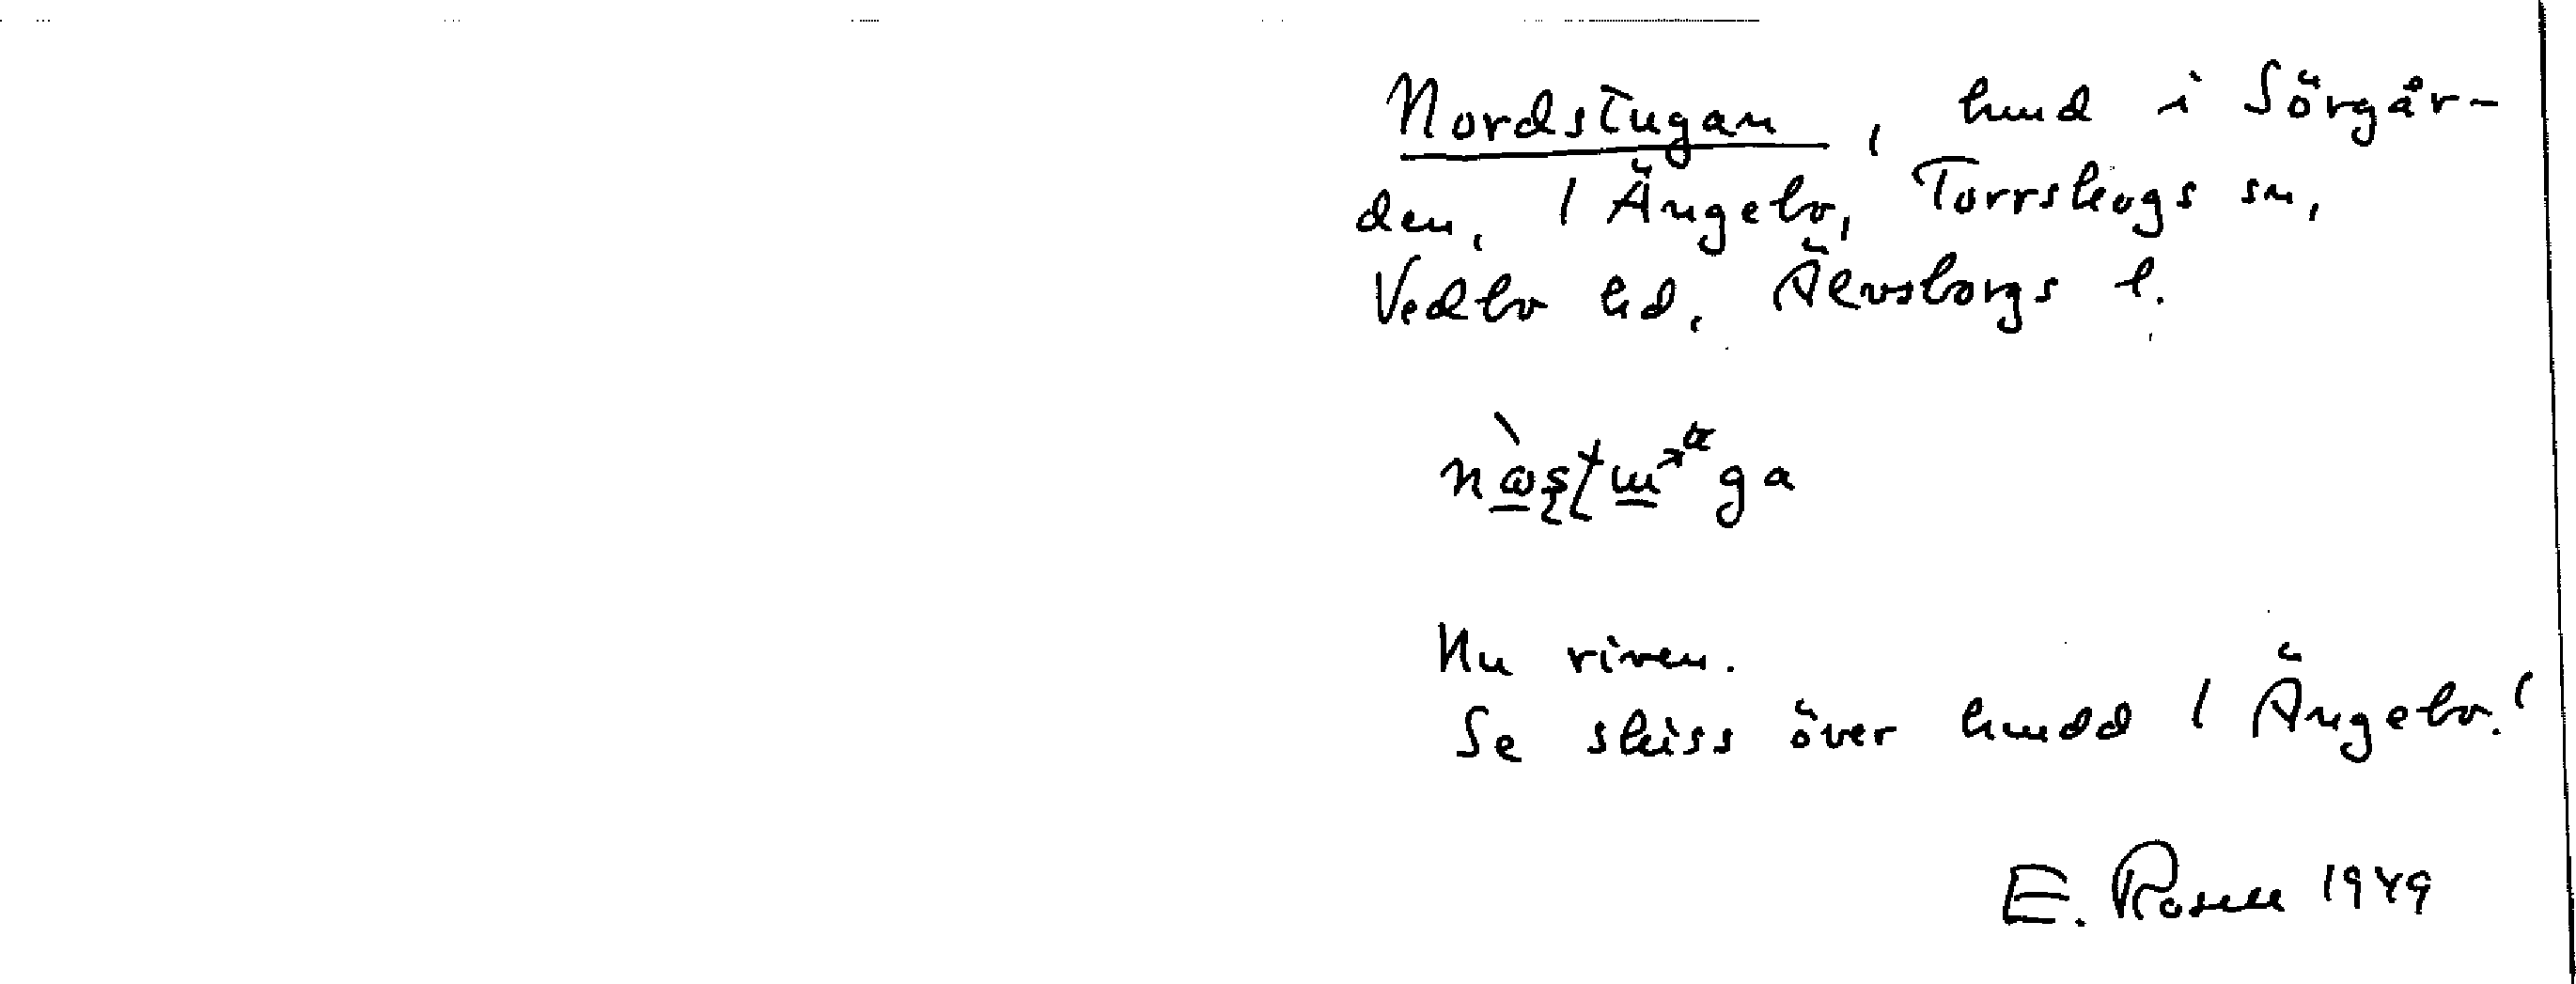 Nordstugan, hmd i Sörgår-
den, 1 Ängebo, Torrskogs sn,
Vedbo hd, Älvsborgs l.
Nu riven.
Se skiss över hmdd 1 Ängebo!
E. Rosell 1949